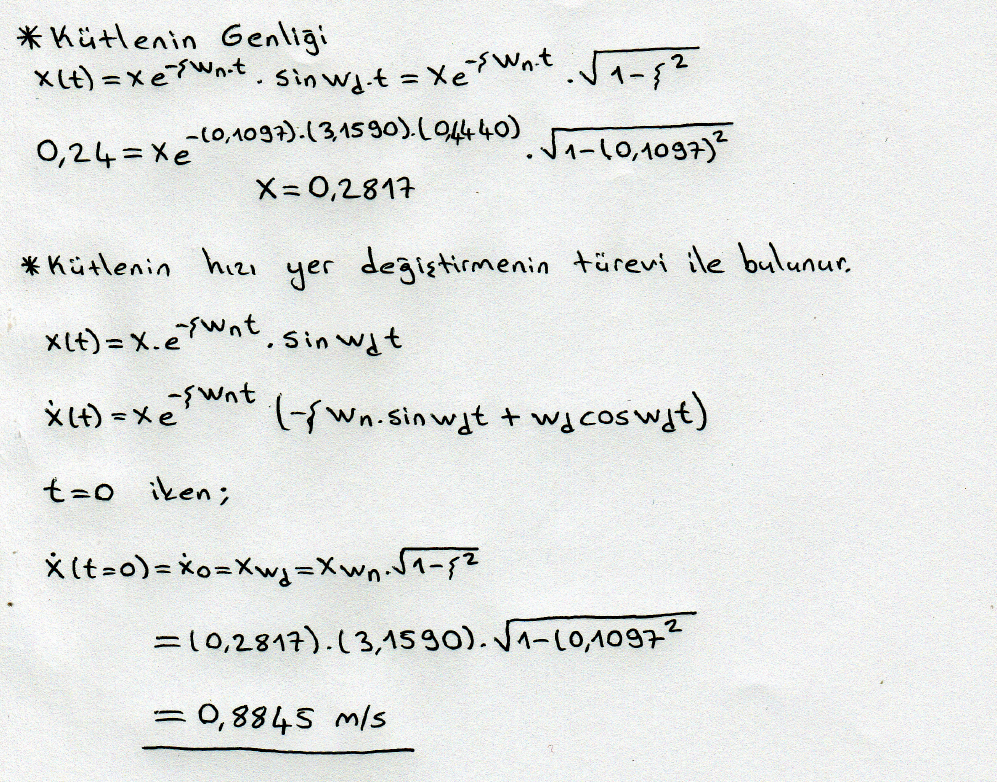 * Kütlenin Genliği
x(t) = x e^{-ζwn.t} . sin wd.t = x e^{-ζwn.t} . √(1-ζ²)
0,24 = x e^{-(0,1097).(3,1590).(0,4440)} . √(1-(0,1097)²)
x = 0,2817
* Kütlenin hızı yer değiştirmenin türevi ile bulunur.
x(t) = x.e^{-ζwnt} . sin wdt
ẋ(t) = x e^{-ζwnt} (-ζ wn.sin wdt + wd cos wdt)
t=0 iken;
ẋ(t=0) = ẋ0 = xwd = xwn.√(1-ζ²)
= (0,2817).(3,1590).√(1-(0,1097²
= 0,8845 m/s